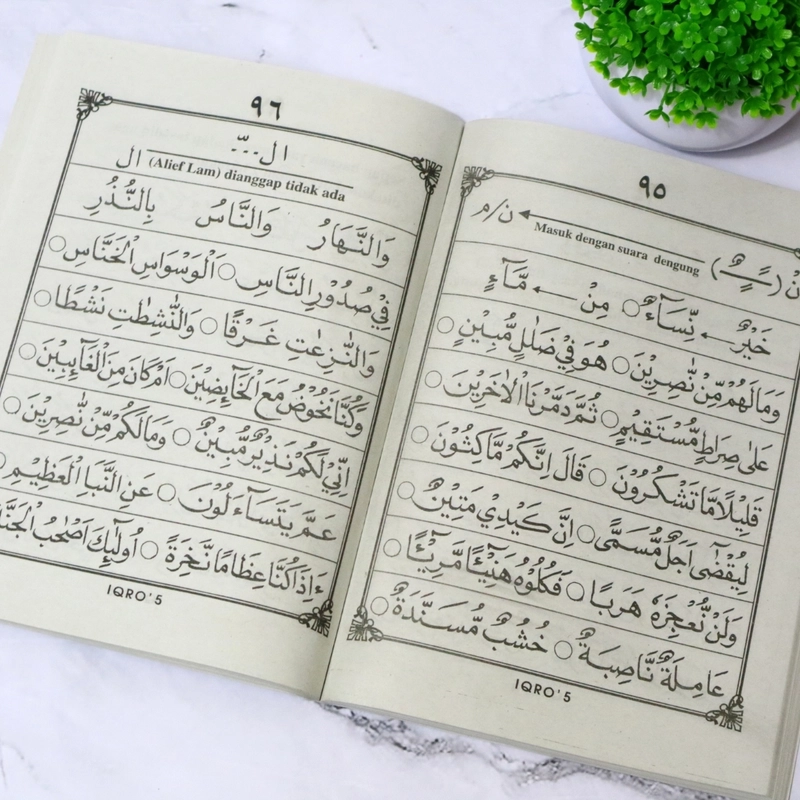 ٩٥
نْ (ـًـٍـٌ) Masuk dengan suara dengung ن/م
خَيْرٌ ← نِّسَآءٌ ○ مِنْ ← مَّآءٍ
وَمَا لَهُمْ مِّنْ نّٰصِرِيْنَ ○ هُوَ فِيْ ضَلٰلٍ مُّبِيْنٍ ○
عَلٰى صِرَاطٍ مُّسْتَقِيْمٍ ○ ثُمَّ دَمَّرْنَا الْاٰخَرِيْنَ ○
قَلِيْلًا مَّا تَشْكُرُوْنَ ○ قَالَ اِنَّكُمْ مَّاكِثُوْنَ ○
لِيُقْضٰٓى اَجَلٌ مُّسَمًّى ○ اِنَّ كَيْدِيْ مَتِيْنٌ ○
وَلَنْ نُّعْجِزَهٗ هَرَبًا ○ فَكُلُوْهُ هَنِيْٓئًا مَّرِيْٓئًا ○
عَامِلَةٌ نَّاصِبَةٌ ○ خُشُبٌ مُّسَنَّدَةٌ ○
IQRO'5
٩٦
ال...ّ
ال (Alief Lam) dianggap tidak ada
وَالنَّهَارُ وَالنَّاسُ بِالنُّذُرِ
فِيْ صُدُوْرِ النَّاسِ ○ اَلْوَسْوَاسِ الْخَنَّاسِ ○
وَالنّٰزِعٰتِ غَرْقًا ○ وَالنّٰشِطٰتِ نَشْطًا ○
وَكُنَّا نَخُوْضُ مَعَ الْخَآئِضِيْنَ ○ اَمْ كَانَ مِنَ الْغَآئِبِيْنَ ○
اِنِّيْ لَكُمْ نَذِيْرٌ مُّبِيْنٌ ○ وَمَا لَكُمْ مِّنْ نّٰصِرِيْنَ ○
عَمَّ يَتَسَآءَلُوْنَ ○ عَنِ النَّبَاِ الْعَظِيْمِ
ءَاِذَا كُنَّا عِظَامًا نَّخِرَةً ○ اُولٰٓئِكَ اَصْحٰبُ
IQRO'5